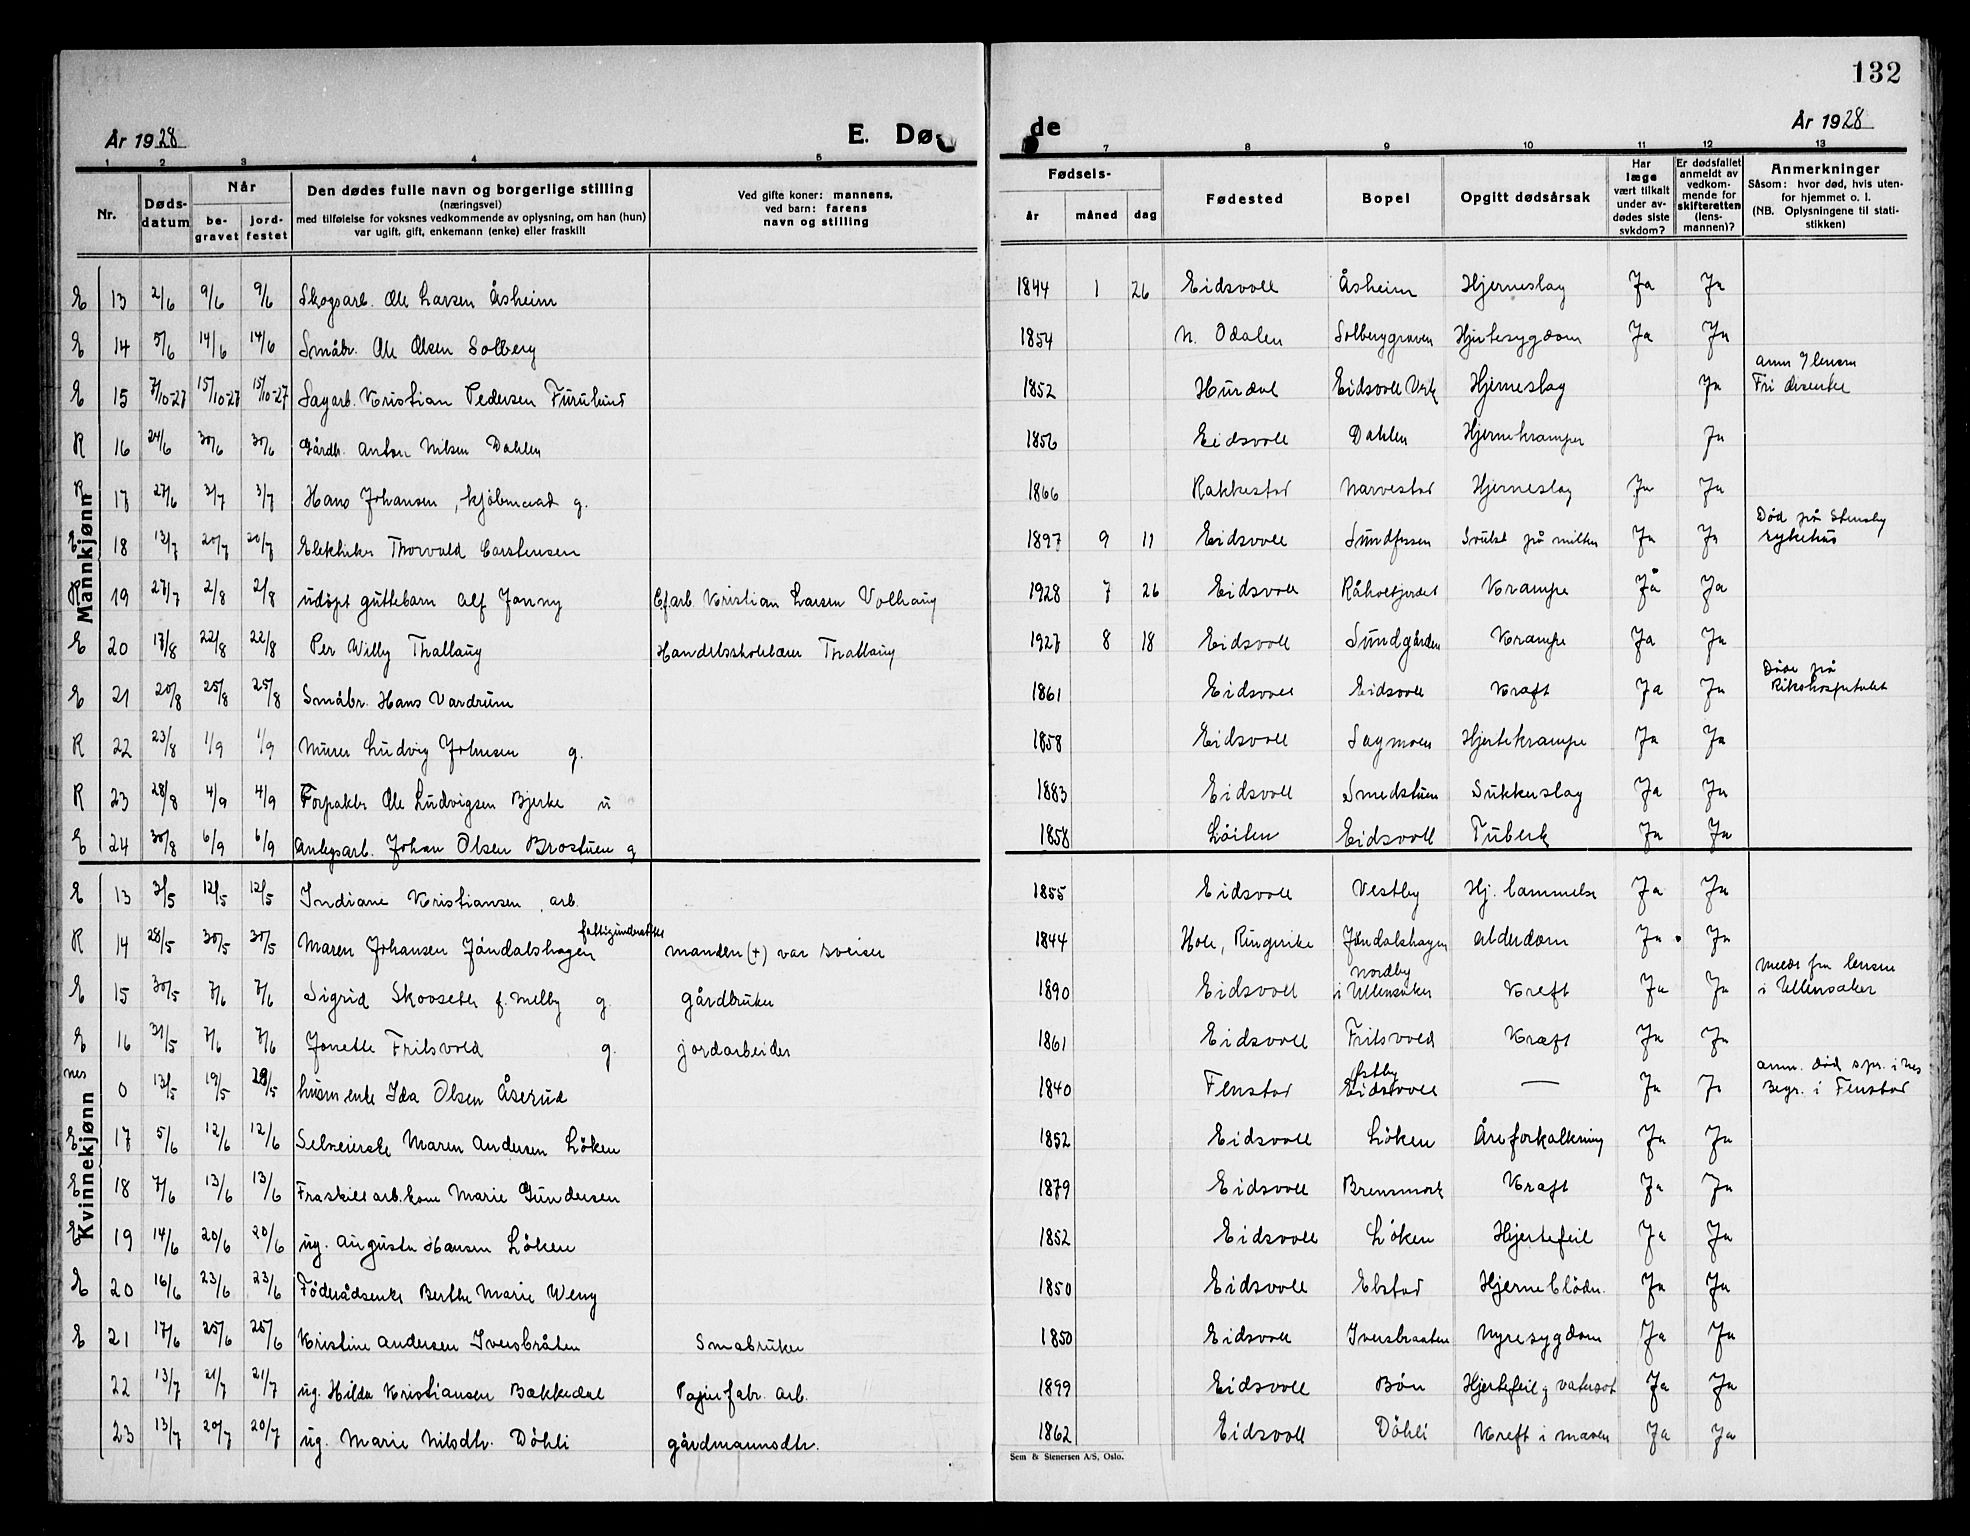 132
År 1928
E. Dø-
de
År 1928
1 2 3 4 5 7 8 9 10 11 12 13
Nr.
Døds-datum
Når
be-gravet
jord-festet
Den dødes fulle navn og borgerlige stilling
(næringsvei)
med tilføielse for voksnes vedkommende av oplysning, om han (hun)
var ugift, gift, enkemann (enke) eller fraskilt
Ved gifte koner: mannens,
ved barn: farens
navn og stilling
Fødsels-
år måned dag
Fødested
Bopel
Opgitt dødsårsak
Har læge vært tilkalt under av-dødes siste sykdom?
Er dødsfallet anmeldt av vedkom-mende for skifteretten (lens-mannen)?
Anmerkninger
Såsom: hvor død, hvis uten-
for hjemmet o. l.
(NB. Oplysningene til stati-
stikken)
Mannkjønn
E 13 2/6 9/6 9/6 Skogsarb. Ole Larsen Åsheim 1844 1 26 Eidsvoll Åsheim Hjerneslag Ja Ja
E 14 5/6 14/6 14/6 Småbr. Ole Olsen Solberg 1854 N. Odalen Solberggraven Hjertesygdom Ja Ja
E 15 7/10-27 15/10-27 15/10-27 Sagarb. Kristian Pedersen Furulund 1852 Hurdal Eidsvoll Verk Hjerneslag Ja
R 16 24/6 30/6 30/6 Gårdb. Anton Nilsen Dahlen 1856 Eidsvoll Dahlen Hjernekramper Ja
R 17 27/6 3/7 3/7 Hans Johansen, kjøbmand g. 1866 Rakkestad Narvestad Hjerneslag Ja Ja
E 18 13/7 20/7 20/7 Elektriker Thorvald Carstensen 1897 9 11 Eidsvoll Sundfossen Svulst på milten Ja Ja Død på Stensby sykehus
R 19 27/7 2/8 2/8 udöpt guttebarn Alf Jonny Efarb. Kristian Larsen Volhaug 1928 7 26 Eidsvoll Råholtjordet Krampe Ja Ja
E 20 17/8 22/8 22/8 Per Willy Thallaug Handelsskolelærer Thallaug 1927 8 18 Eidsvoll Sundgården Krampe Ja Ja
E 21 20/8 25/8 25/8 Småbr. Hans Vardrum 1861 Eidsvoll Eidsvoll Kræft Ja Ja Døde på Rikshospitalet
R 22 23/8 1/9 1/9 Murer Ludvig Johnsen g. 1858 Eidsvoll Sagmoen Hjertekrampe Ja Ja
R 23 28/8 4/9 4/9 Forpakter Ole Ludvigsen Bjerke u 1883 Eidsvoll Smedstuen Sukkerslag Ja Ja
E 24 30/8 6/9 6/9 Anlegsarb. Johan Olsen Brostuen g 1858 Löiten Eidsvoll Tuberk Ja Ja
Kvinnekjønn
E 13 3/5 12/5 12/5 Indiane Kristiansen arb. 1855 Eidsvoll Vestby Hj. lammelse Ja Ja
R 14 28/5 30/5 30/5 Maren Johansen Jöndalshagen fattigunderst. manden (+) var sveiser 1844 Hole, Ringerike Jöndalshagen Alderdom Ja Ja
E 15 30/5 7/6 7/6 Sigrid Skovseth f. Melby g. gårdbruker 1890 Eidsvoll Nordby i Ullensaker Kreft Ja Ja Meldt fra lensm i Ullensaker
E 16 31/5 7/6 7/6 Jonette Fritsvold g. jordarbeider 1861 Eidsvoll Fritsvold Kræft Ja Ja
nes 0 13/5 19/5 29/5 husm.enke Ida Olsen Åserud 1840 Fenstad Østby Eidsvoll — Ja Ja anm. død spr. i Nes Begr. i Fenstad
E 17 5/6 12/6 12/6 Selveierske Maren Andersen Löken 1852 Eidsvoll Löken Åreforkalkning Ja Ja
E 18 7/6 13/6 13/6 Fraskilt arb.kone Marie Gundersen 1879 Eidsvoll Brensmork Kræft Ja Ja
E 19 14/6 20/6 20/6 ug. Augusta Hansen Löken 1852 Eidsvoll Löken Hjertefeil Ja Ja
E 20 16/6 23/6 23/6 Föderådsenke Berthe Marie Weng 1850 Eidsvoll Elstad Hjerneblödn. Ja Ja
E 21 17/6 25/6 25/6 Kristine Andersen Iversbråten Smabruker 1850 Eidsvoll Iversbraaten Nyresygdom Ja Ja
22 13/7 21/7 21/7 ug. Hilda Kristiansen Bækkedal Papirfabr. arb. 1899 Eidsvoll Bön Hjertefeil g vatersot Ja Ja
23 13/7 20/7 20/7 ug. Marie Nilsdtr. Döhli gårdmannsdtr. 1862 Eidsvoll Döhli Kreft i maven Ja Ja
Sem & Stenersen A/S, Oslo.